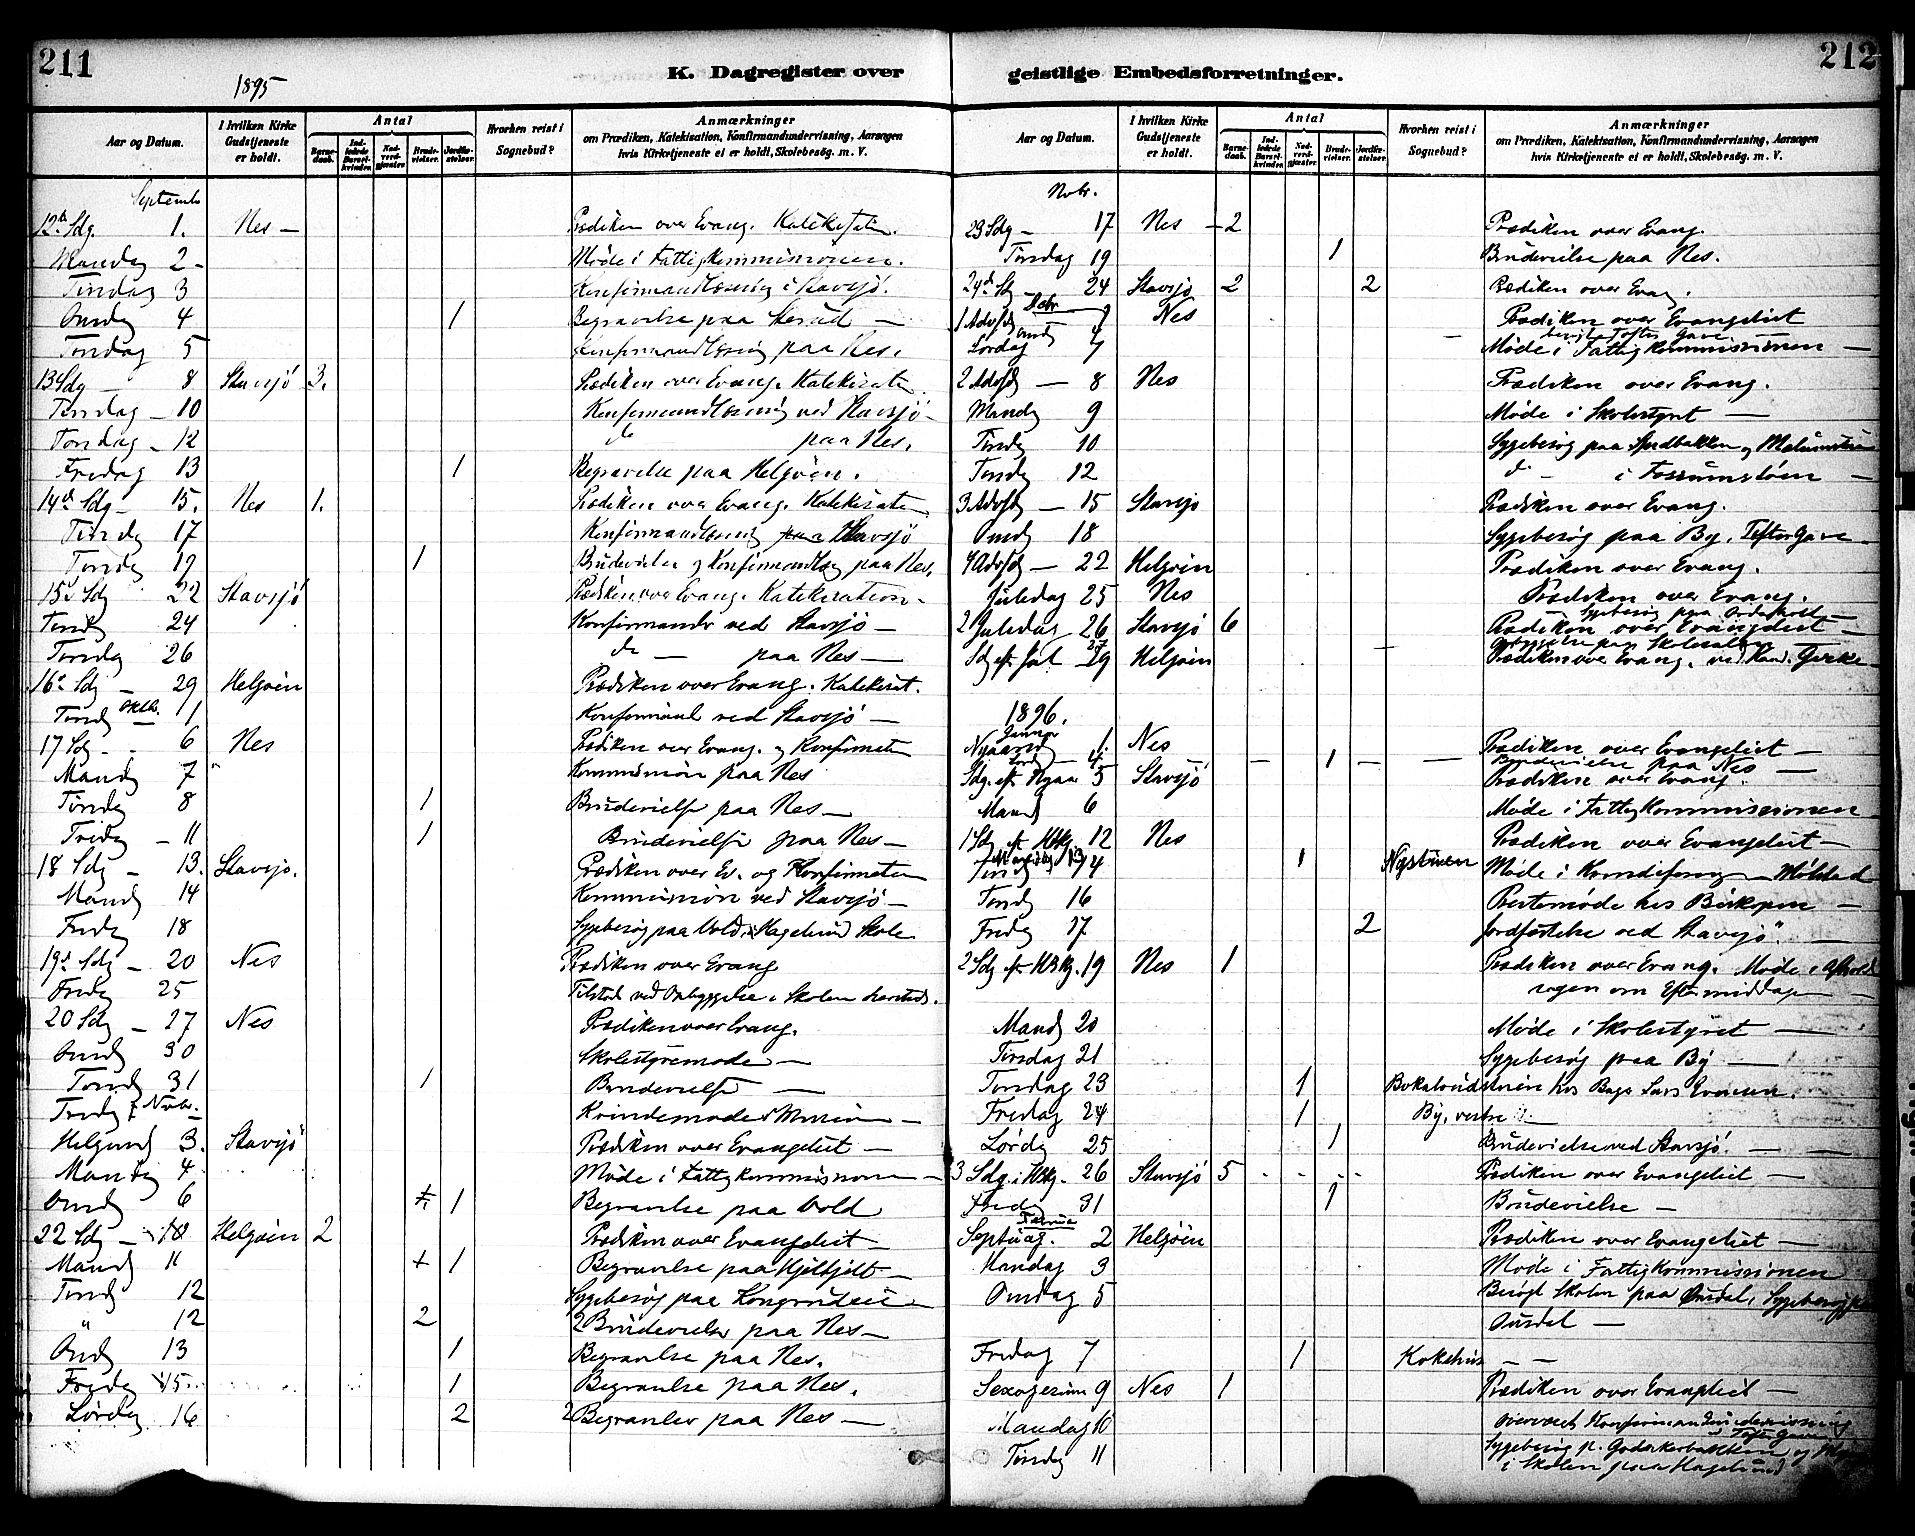 211
1895
K. Dagregister over
Aar og Datum. I hvilken Kirke Gudstjeneste er holdt. Antal Barnedaab. Indledede Barselkvinder. Nadverdgjæster. Brudevielser. Jordfæstelser. Hvorhen reist i Sognebud? Anmærkninger om Prædiken, Katekisation, Konfirmandundervisning, Aarsagen hvis Kirketjeneste ei er holdt, Skolebesøg. m. V.
Septemb
12te Sdg. 1. Nes — Prædiken over Evang. Katekisation.
Mandag 2 - Møde i Fattigkommissionen.
Tirsdag 3 Konfirmandlæsning i Stavsjö.
Onsdg 4 1 Begravelse paa —
Torsdag 5 Konfirmandlæsning paa Nes.
13 Sdg — 8 Stavsjö 3. Prædiken over Evang. Katekisation
Tirsdag — 10 Konfirmandlæsning ved Stavsjö -
Torsdag - 12 do paa Nes.
Fredag 13 1 Begravelse paa Helgøen.
14de Sdg - 15. Nes 1. Prædiken over Evang. Katekisation
Tirsdg 17 Konfirmandlæsning Stavsjö
Torsdg 19 1 Brudevielse og Konfirmandlæsg paa Nes.
15d Sdg 22 Stavsjö Prædiken over Evang. Katekisation -
Tirsdg 24 Konfirmander ved Stavsjö —
Torsdag 26 do — paa Nes —
16de Sdg - 29 Helgøen Prædiken over Evang. Katekisat.
Tirsdg Oktb. 1 Konfirmand ved Stavsjö —
17 Sdg - 6 Nes Prædiken over Evang. og Konfirmation
Mandg 7 " Kommunion paa Nes
Tirsdg 8 1 Brudevielse paa Nes —
Fredg — 11 1 Brudevielse paa Nes —
18 Sdg - 13. Stavsjö. Prædiken over Ev. og Konfirmation
Mandg 14 Kommunion ved Stavsjö —
Fredg 18 Sygebesøg paa Vold, Hagelund Skole
19d Sdg - 20 Nes Prædiken over Evang
Fredg 25 Tilstede ved i Skolen
20 Sdg — 27 Nes Prædiken over Evang.
Onsdg 30 Skolestyremøde —
Torsdg 31 1 Brudevielse —
Fredg 1 Novbr. Kvindemøde Mission —
Helgensd 3. Stavsjö Prædiken over Evangeliet —
Mandag 4 Møde i Fattigkommissionen -
Onsdg 6 1 Begravelse paa Vold
22 Sdg — 10 Helgøen 2 Prædiken over Evangeliet —
Mandg 11 1 Begravelse paa —
Tirsdg 12 Sygebesøg paa —
" 12 2 2 Brudevielser paa Nes —
Onsdg 13 1 Begravelse paa Nes.
Fredag 15 1 Begravelse paa Nes.
Lørdag 16 2 2 Begravelser paa Nes —
212
geistlige Embedsforretninger.
Aar og Datum. I hvilken Kirke Gudstjeneste er holdt. Antal Barnedaab. Indledede Barselkvinder. Nadverdgjæster. Brudevielser. Jordfæstelser. Hvorhen reist i Sognebud? Anmærkninger om Prædiken, Katekisation, Konfirmandundervisning, Aarsagen hvis Kirketjeneste ei er holdt, Skolebesøg. m. V.
Nvbr.
23 Sdg — 17 Nes - 2 Prædiken over Evang.
Tirsdag 19 1 Brudevielse paa Nes.
24de Sdg — 24 Stavsjö 2 2 Prædiken over Evang.
1 Advsdg Debr 1 Nes Prædiken over Evangeliet
Onsdg 4
Lørdag 7 Møde i Fattigkommissionen —
2 Advsdg — 8 Nes Prædiken over Evang.
Mandg 9 Møde i Skolestyret —
Tirsdg 10 Sygebesøg paa og
Torsdg 12 do - i —
3 Advsdg — 15 Stavsjö Prædiken over Evang.
Onsdg 18 Sygebesøg paa By,
4 Advsdg — 22 Helgøen Prædiken over Evang.
Juledag 25 Nes Prædiken over Evang.
Sygebesøg paa
2 Juledag 26 Stavsjö 6 Prædiken over Evangeliet —
27 paa
Sdg eft Jul 29 Helgøen Prædiken over Evang. ved Kand.
1896.
Januar
Nyaarsdg 1. Nes Prædiken over Evangeliet —
Lørdg — 4 — 1 — — Brudevielse paa Nes —
Sdg. eft Nyaar 5 Stavsjö Prædiken over Evang.
Mandg 6 Møde i Fattigkommissionen
1 Sdg eft H3kg. 12 Nes Prædiken over Evangeliet —
Tirsdg 14 1 Møde i
Torsdg 16 Prestemøde hos Biskopen —
Fredg 17 2 Jordfæstelse ved Stavsjö. —
2 Sdg eft H3kg. 19 Nes 1 Prædiken over Evang. Møde i
om Eftermiddagen —
Mandg 20 Møde i Skolestyret —
Tirsdag 21 Sygebesøg paa By —
Torsdag 23 1 hos Lars
Fredag 24 1 By, vestre
Lørdg 25 1 Brudevielse ved Stavsjö. —
3 Sdg. i H3kg. 26 Stavsjö 5 Prædiken over Evangeliet —
Fredg 31 1 Brudevielse —
Februar
Septuag. 2 Helgøen Prædiken over Evangeliet —
Mandag 3 Møde i Fattigkommissionen
Onsdag 5 Besøgt Skolen paa Sygebesøg
—
Fredag 7 1 — —
Sexagesima 9 Nes 1 Prædiken over Evangeliet —
Mandag 10 Overværet Konfirmandundervisning
Tirsdag 11 Sygebesøg p. og
i Skolen paa Hagelund